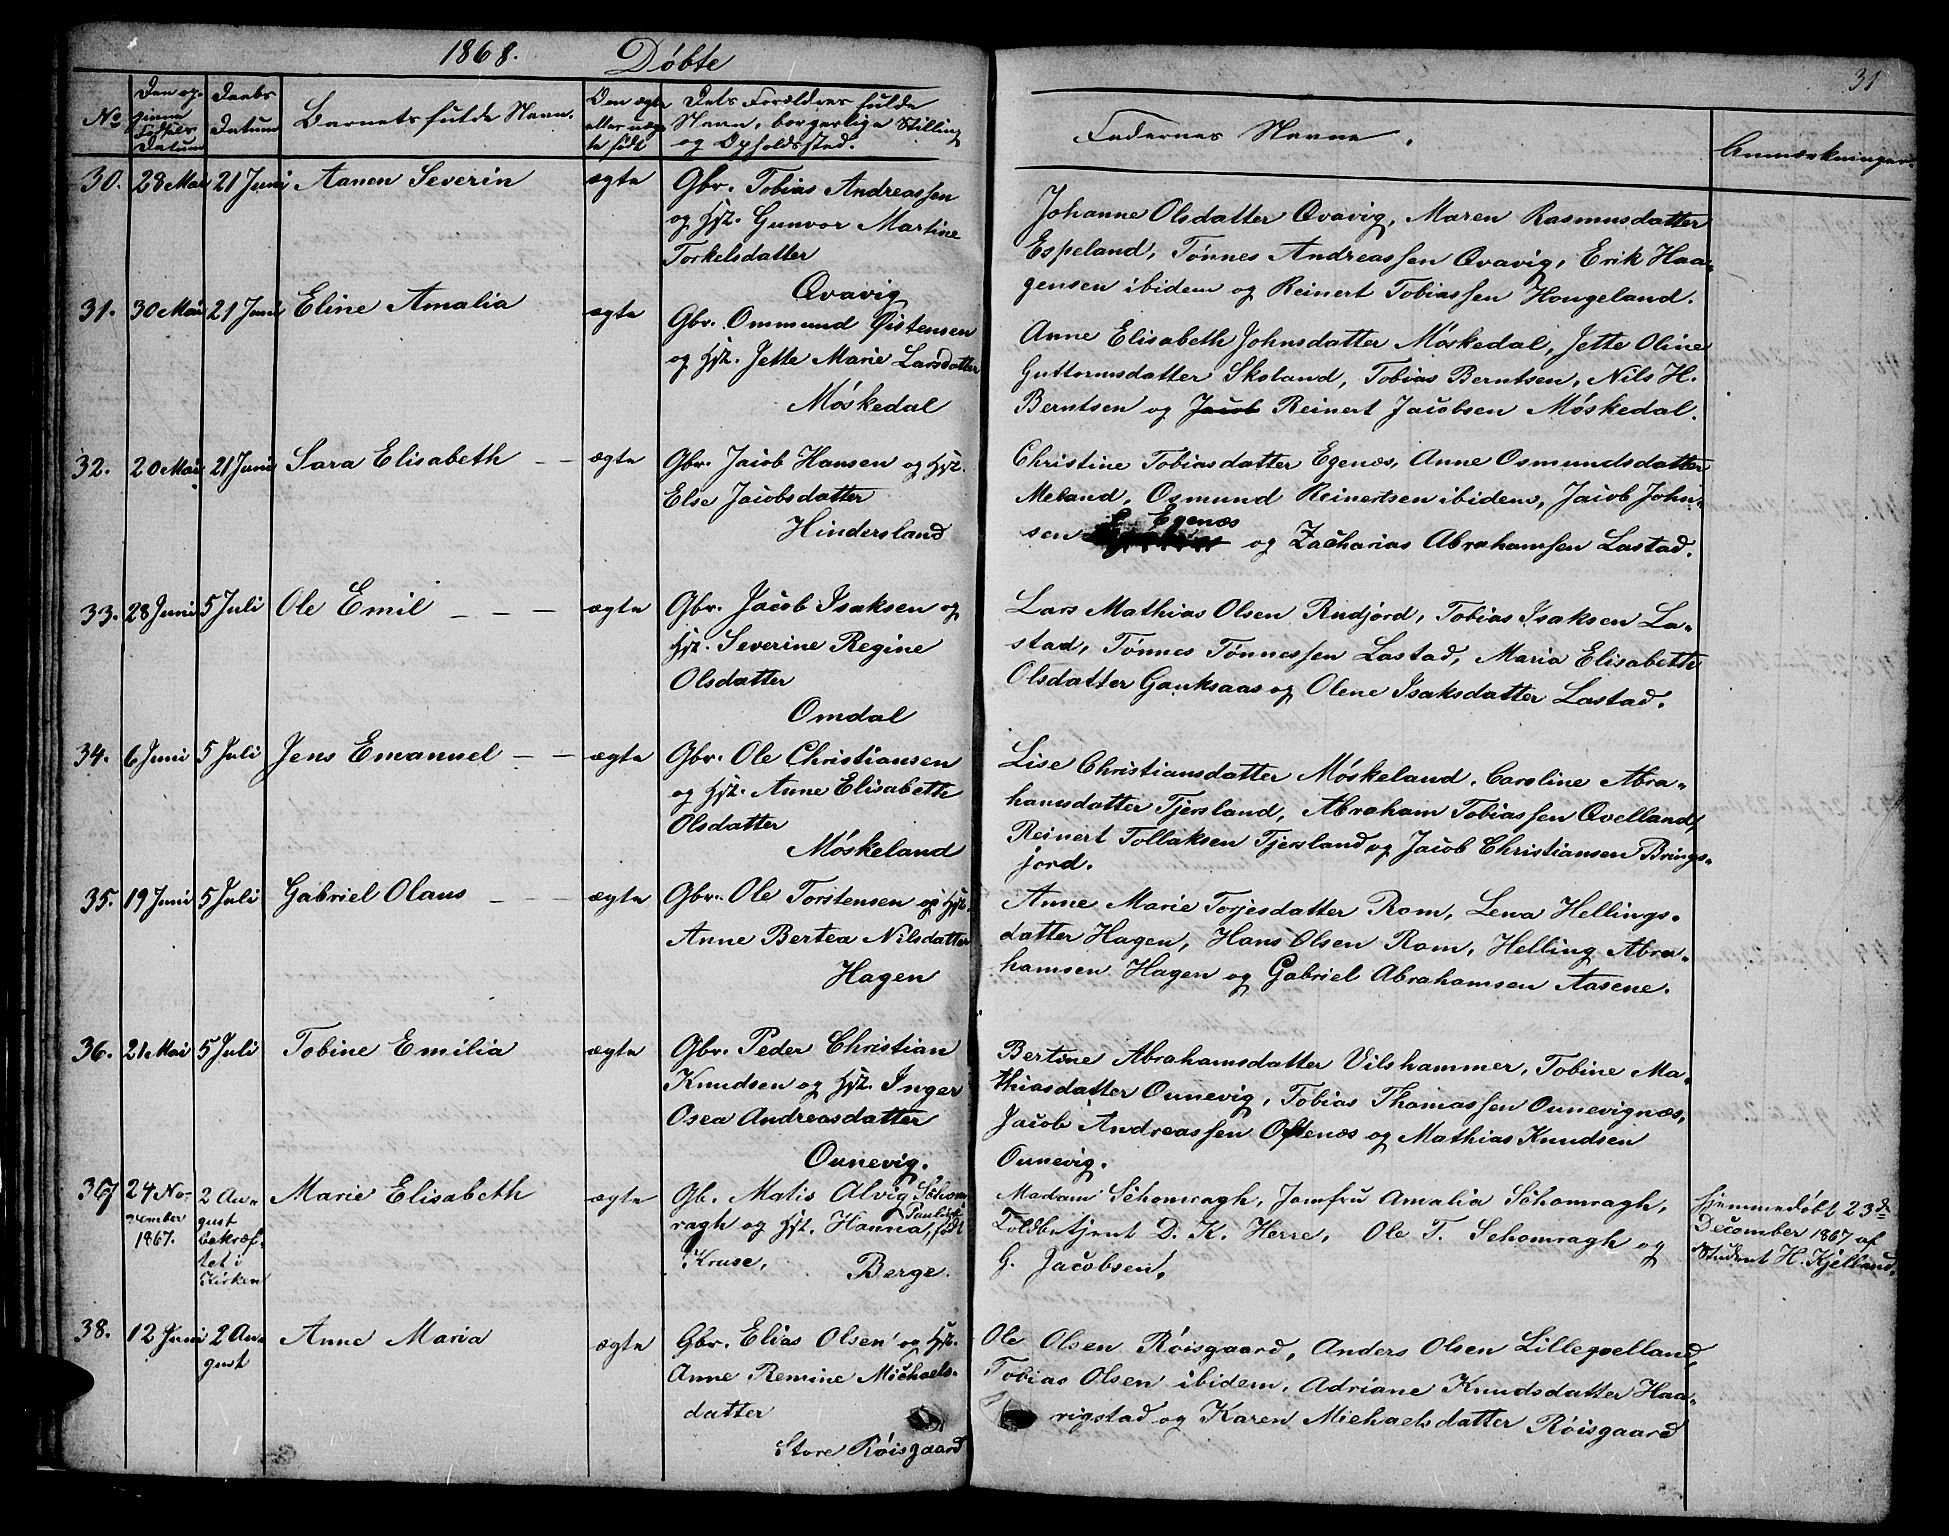 1868. Døbte
31
No
Den op-
givne
Fødsels
Datum
Daabs
Datum
Barnets fulde Navn.
Om ægte
eller uæg-
te født
Dets Forældres fulde
Navn, borgerlige Stilling
og Opholdssted.
Faddernes Navne.
Anmærkninger.
30. 28 Mai 21 Juni Aanen Severin ægte Gbr. Tobias Andreassen
og Hst. Gunvor Martine
Torkelsdatter
Qvavig
Johanne Olsdatter Qvavig, Maren Rasmusdatter
Espeland, Tønnes Andreassen Qvavig, Erik Haa-
gensen ibidem og Reinert Tobiassen Hougeland.
31. 30 Mai 21 Juni Eline Amalia ægte Gbr. Ommund Øistensen
og Hst. Jette Marie Larsdatter
Møskedal
Anne Elisabeth Johnsdatter Møskedal, Jette Oline
Guttormsdatter Skoland, Tobias Berntsen, Nils H.
Berntsen og Jacob Reinert Jacobsen Møskedal.
32. 20 Mai 21 Juni Sara Elisabeth — — ægte Gbr. Jacob Hansen og Hst.
Else Jacobsdatter
Hindersland
Christine Tobiasdatter Egenæs, Anne Osmundsdatter
Meland, Osmund Reinertsen ibidem, Jacob John-
sen Egenæs og Zacharias Abrahamsen Lastad.
33. 28 Juni 5 Juli Ole Emil — — — ægte Gbr. Jacob Isaksen og
Hst. Severine Regine
Olsdatter
Omdal
Lars Mathias Olsen Rudjord, Tobias Isaksen La-
stad, Tønnes Tønnessen Lastad, Maria Elisabeth
Olsdatter Gauksaas og Olene Isaksdatter Lastad.
34. 6 Juni 5 Juli Jens Emanuel — — ægte Gbr. Ole Christiansen
og Hst. Anne Elisabeth
Olsdatter
Møskeland
Lise Christiansdatter Møskeland, Caroline Abra-
hamsdatter Tjersland, Abraham Tobiassen Qvelland,
Reinert Tollaksen Tjersland og Jacob Christiansen Brings-
jord.
35. 19 Juni 5 Juli Gabriel Olaus — — — ægte Gbr. Ole Torstensen og Hst.
Anne Bertea Nilsdatter
Hagen
Anne Marie Torjesdatter Rom, Lena Hellings-
datter Hagen, Hans Olsen Rom, Helling Abra-
hamsen Hagen og Gabriel Abrahamsen Aasene.
36. 21 Mai 5 Juli Tobine Emilia ægte Gbr. Peder Christian
Knudsen og Hst. Inger
Osea Andreasdatter
Ounevig.
Bertine Abrahamsdatter Vilshammer, Tobine Ma-
thiasdatter Ounevig, Tobias Thomassen Ounevignæs,
Jacob Andreassen Oftenæs og Mathias Knudsen
Ounevig.
37 24 No-
vember
1867.
2 Au-
gust
bekræf-
tet i
Kirken
Marie Elisabeth ægte Gb. Matis Alvig Schom-
ragh og Hst. Hanna Pauline, født
Kruse, Berge.
Madam Schomragh, Jomfru Amalia Schomragh,
Toldbetjent D. K. Herre, Ole T. Schomragh og
G. Jacobsen.
Hjemmedøbt 23de
December 1867 af
Student H. Kjelland.
38. 12 Juni 2 Au-
gust
Anne Maria ægte Gbr. Elias Olsen og Hst.
Anne Remine Michaels-
datter
Store Røisgaard
Ole Olsen Røisgaard, Anders Olsen Lilleqvelland,
Tobias Olsen ibidem, Adriane Knudsdatter Haa-
rigstad og Karen Michaelsdatter Røisgaard